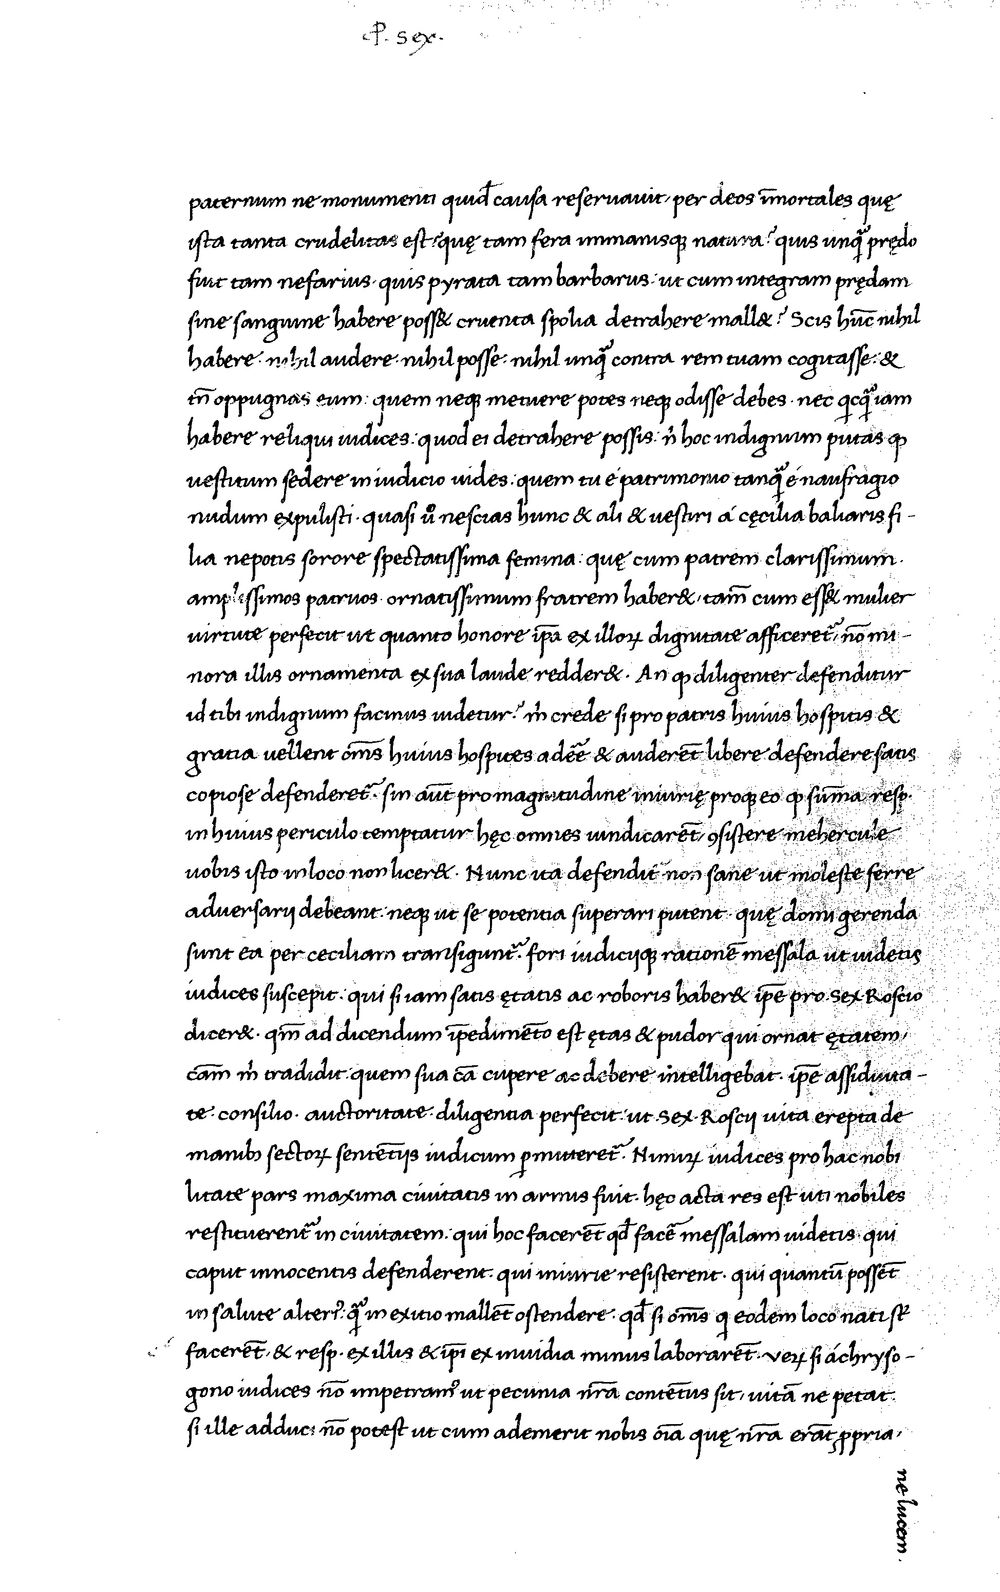 P. sex.
paternum ne monumenti quid̄ causa reseruauit, per deos īmortales quę
ista tanta crudelitas est? quę tam fera immanisq; natura? quis unq̃ prędo
fuit tam nefarius. quis pyrata tam barbarus. ut cum integram prędam
sine sanguine habere poss& cruenta spolia detrahere mall&? Scis hūc nihil
habere. nihil audere. nihil posse. nihil unq̃ contra rem tuam cogitasse. &
tn̄ oppugnas eum. quem neq; metuere potes neq; odisse debes. nec q̇cq̃ iam
habere reliqui iudices. quod ei detrahere possis. n̄ hoc indignum putas qp
uestitum sedere in iudicio uides. quem tu é patrimonio tanq̃ é naufragio
nudum expulisti. quasi ůo nescias hunc & ali & uestiri á cęcilia baliaris fi-
lia nepotis sorore spectatissima femina. quę cum patrem clarissimum.
amplissimos patruos. ornatissimum fratrem haber&, tam̄ cum ess& mulier
uirtute perfecit ut quanto honore ip̄a ex illoꝝ dignitate afficeret᷑, nō mi-
nora illis ornamenta ex sua laude redder&. An qp diligenter defenditur
id tibi indignum facinus uidetur? m̄ crede si pro patris huius hospitis &
gratia uellent om̄s huius hospites adeē & auderēt libere defendere satis
copiose defenderet᷑. sin aūt pro magnitudine iniurię proq; eo qp sum̄a resp.
in huius periculo temptatur hęc omnes uindicarēt, ꝯsistere mehercule
uobis isto in loco non licer&. Nunc ita defendit᷑ non sane ut moleste ferre
aduersarij debeant. neq; ut se potentia superari putent. quę domi gerenda
sunt ea per ceciliam transigunt᷑. fori iudicijq; rationē messala ut uidetis
iudices suscepit. qui si iam satis ętatis ac roboris haber& ip̄e pro. Sex Roscio
dicer&. qm̄ ad dicendum īpedimēto est ętas & pudor qui ornat ętatem,
cām m̄ tradidit. quem sua cā cupere ac debere intelligebat. ip̄e assiduita-
te. consilio. auctoritate. diligentia perfecit. ut Sex. Roscij uita erepta de
manibꝫ sectoꝝ sentētijs iudicum ꝑmitteret᷑. Nimiꝝ iudices pro hac nobi
litate pars maxima ciuitatis in armis fuit. hęc acta res est uti nobiles
restituerent᷑ in ciuitatem. qui hoc facerēt qd̄ facē messalam uidetis. qui
caput innocentis defenderent. qui iniurie resisterent. qui quantū possēt
in salute alteri᷒. q̃ in exitio mallēt ostendere. qd̄ si om̄s q̇ eodem loco nati st̄
facerēt, & resp. ex illis & ip̄i ex inuidia minus laborarēt. Veꝝ si á chryso-
gono iudices nō impetram᷒ ut pecunia nr̄a contētus sit, uitā ne petat.
si ille adduci nō potest ut cum ademerit nobis oīa quę nr̄a erāt ꝓpria,
ne lucem.